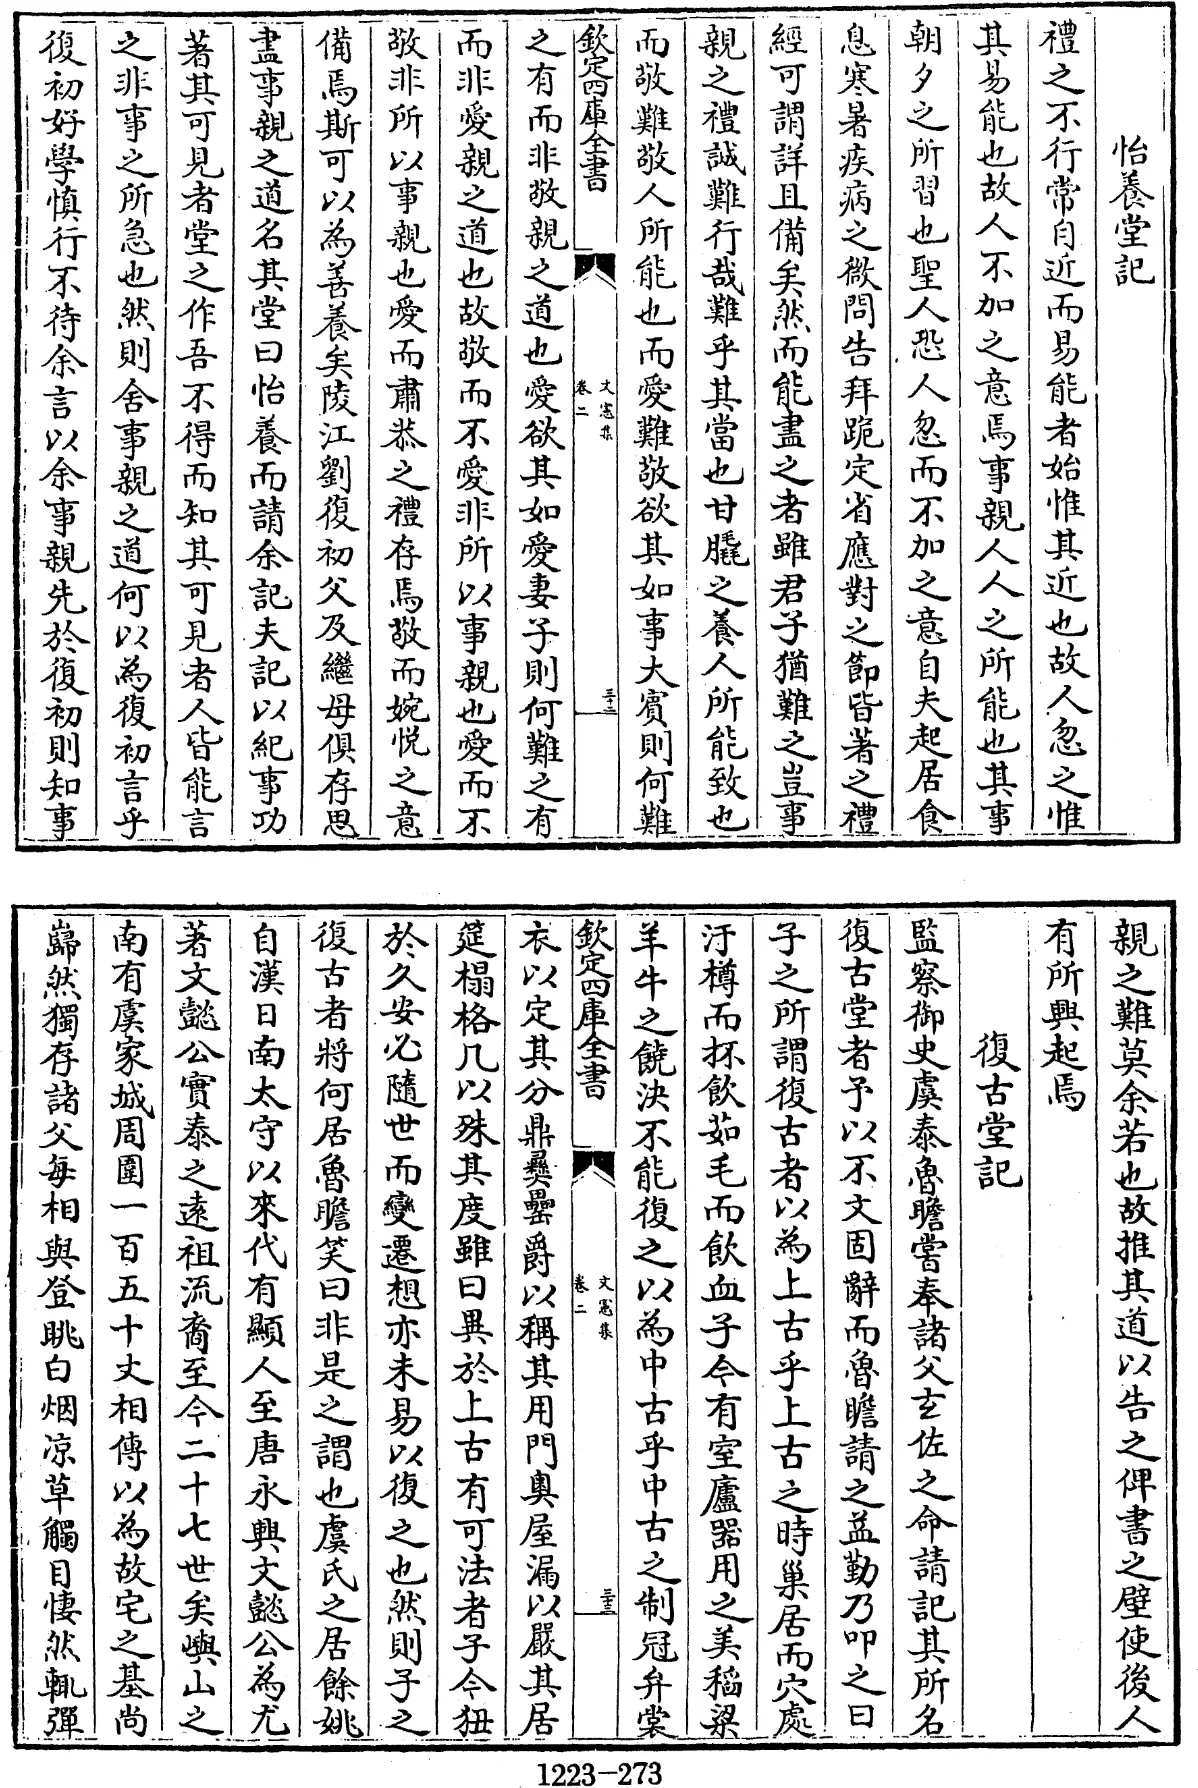 怡養堂記
禮之不行常自近而易能者始惟其近也故人忽之惟
其易能也故人不加之意焉事親人人之所能也其事
朝夕之所習也聖人恐人忽而不加之意自夫起居食
息寒暑疾病之微問告拜跪定省應對之節皆著之禮
經可謂詳且備矣然而能盡之者雖君子猶難之豈事
親之禮誠難行哉難乎其當也甘膬之養人所能致也
而敬難敬人所能也而愛難敬欲其如事大賓則何難
欽定四庫全書
文憲集
卷二
三十二
之有而非敬親之道也愛欲其如愛妻子則何難之有
而非愛親之道也故敬而不愛非所以事親也愛而不
敬非所以事親也愛而肅恭之禮存焉敬而婉悦之意
備焉斯可以為善養矣陵江劉復初父及繼母俱存思
盡事親之道名其堂曰怡養而請余記夫記以紀事功
著其可見者堂之作吾不得而知其可見者人皆能言
之非事之所急也然則舍事親之道何以為復初言乎
復初好學慎行不待余言以余事親先於復初則知事
親之難莫余若也故推其道以告之俾書之壁使後人
有所興起焉
復古堂記
監察御史虞泰魯瞻嘗奉諸父玄佐之命請記其所名
復古堂者予以不文固辭而魯瞻請之益勤乃叩之曰
子之所謂復古者以為上古乎上古之時巢居而穴處
汙樽而抔飲茹毛而飲血子今有室廬器用之美稻粱
羊牛之饒決不能復之以為中古乎中古之制冠弁裳
欽定四庫全書
文憲集
卷二
三十三
衣以定其分鼎彛罍爵以稱其用門奥屋漏以嚴其居
筵榻格几以殊其度雖曰異於上古有可法者子今狃
於久安必隨世而變遷想亦未易以復之也然則子之
復古者將何居魯瞻笑曰非是之謂也虞氏之居餘姚
自漢日南太守以來代有顯人至唐永興文懿公為尤
著文懿公實泰之遠祖流裔至今二十七世矣嶼山之
南有虞家城周圍一百五十丈相傳以為故宅之基尚
巋然獨存諸父每相與登眺白烟凉草觸目悽然輒彈
1223-273